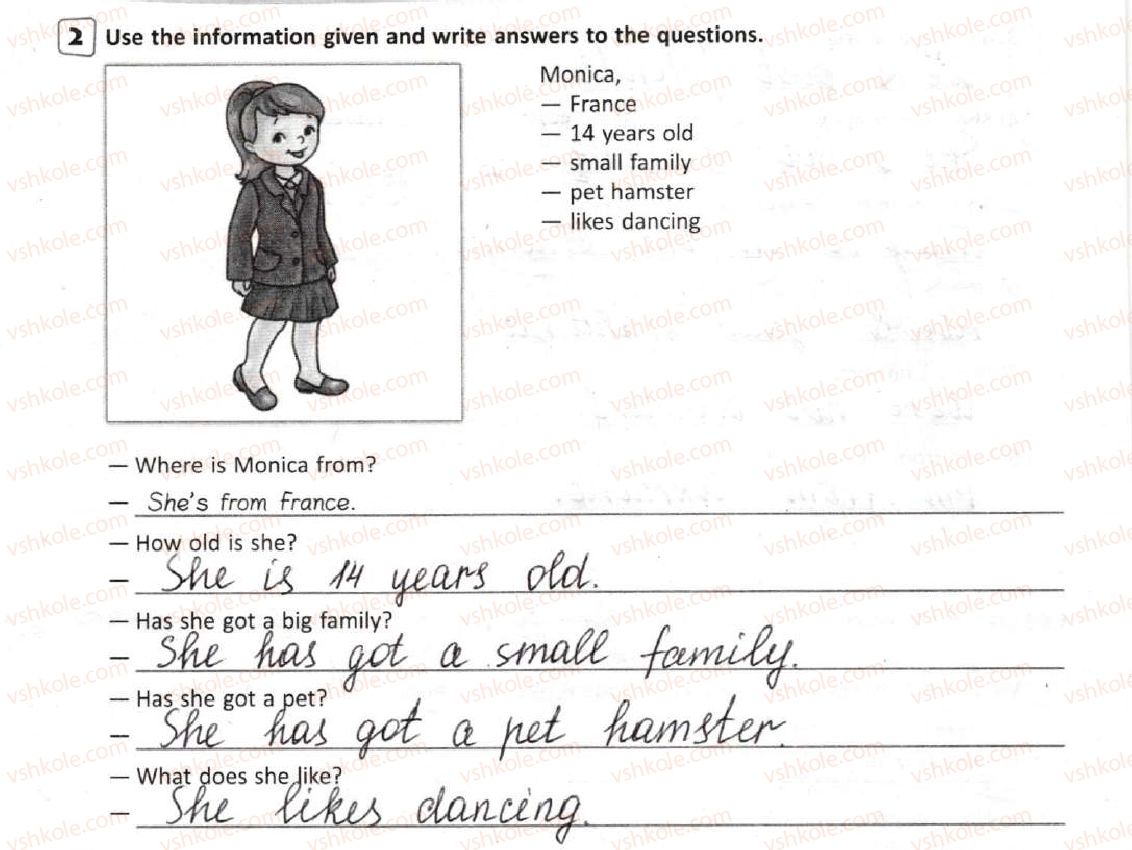 2 Use the information given and write answers to the questions.
Monica,
— France
— 14 years old
— small family
— pet hamster
— likes dancing
— Where is Monica from?
— She's from France.
— How old is she?
— She is 14 years old.
— Has she got a big family?
— She has got a small family.
— Has she got a pet?
— She has got a pet hamster.
— What does she like?
— She likes dancing.
vshkole.com